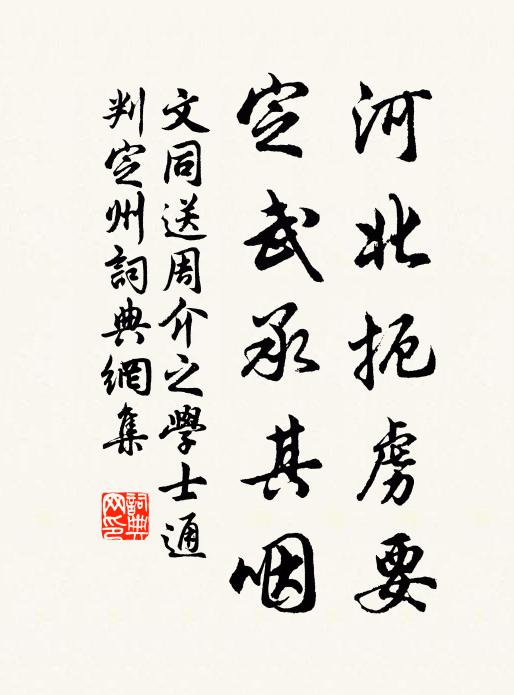 河北扼虜要
定武承其咽
文同送周介之學士通
判定州詞典網集
詞典网印